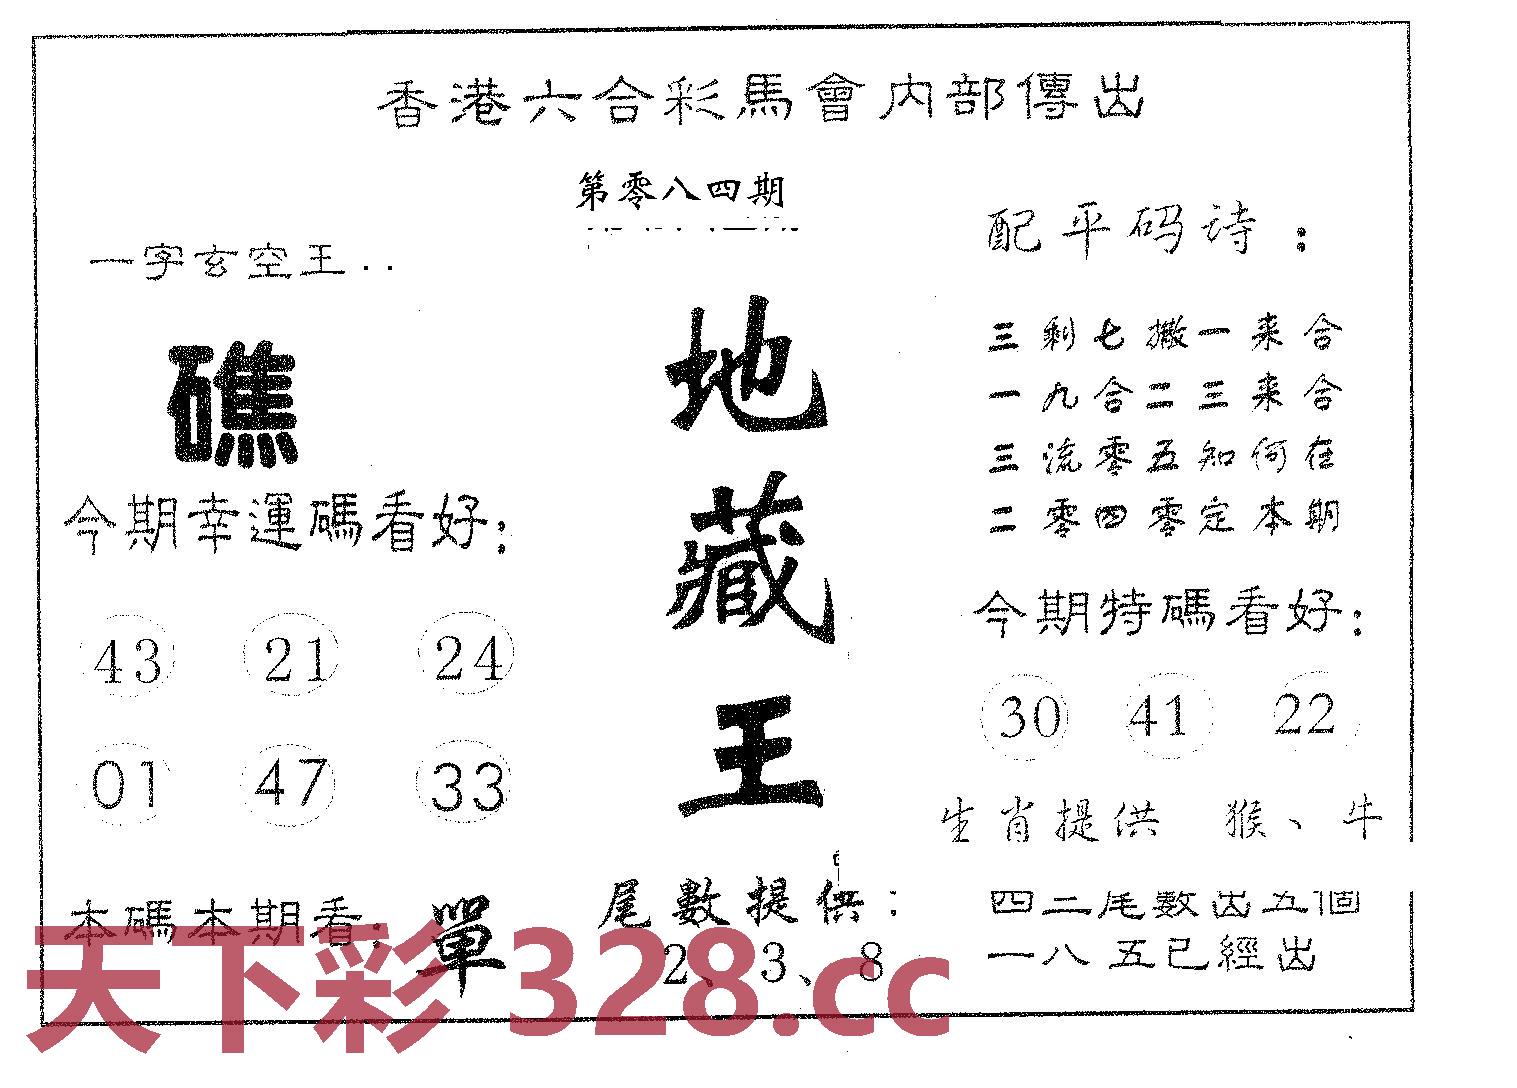 香港六合彩馬會内部傳出
第零八四期
一字玄空王..
礁
今期幸運碼看好:
43 21 24
01 47 33
本碼本期看: 單
地藏王
尾數提供:
2、3、8
配平码诗:
三剩七撒一来合
一九合二三来合
三流零五知何在
二零四零定本期
今期特碼看好:
30 41 22
生肖提供 猴、牛
四二尾数出五個
一八五已經出
天下彩328.cc